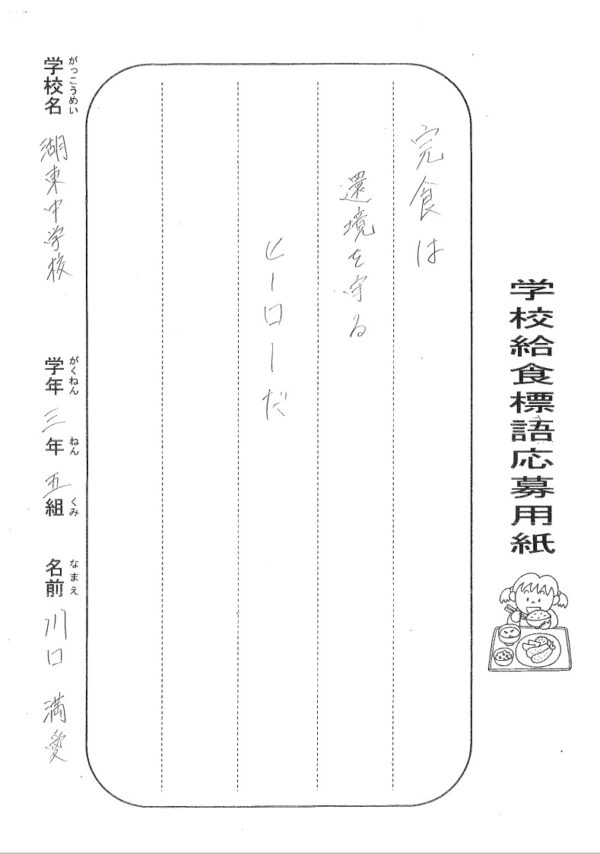 学校給食標語応募用紙
完食は
環境を守る
ヒーローだ
学校名 湖東中学校 学年 三年 五組 名前 川口 満愛
がっこうめい がくねん ねん くみ なまえ